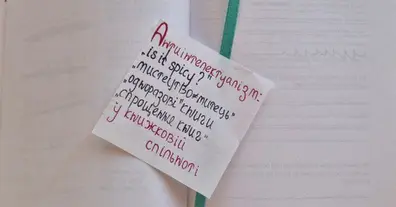 Антиінтелектуалізм:
„is it spicy?"
„мистецтво≠митець"
„одноразові" книги
„спрощення книг"
у книжковій
спільноті